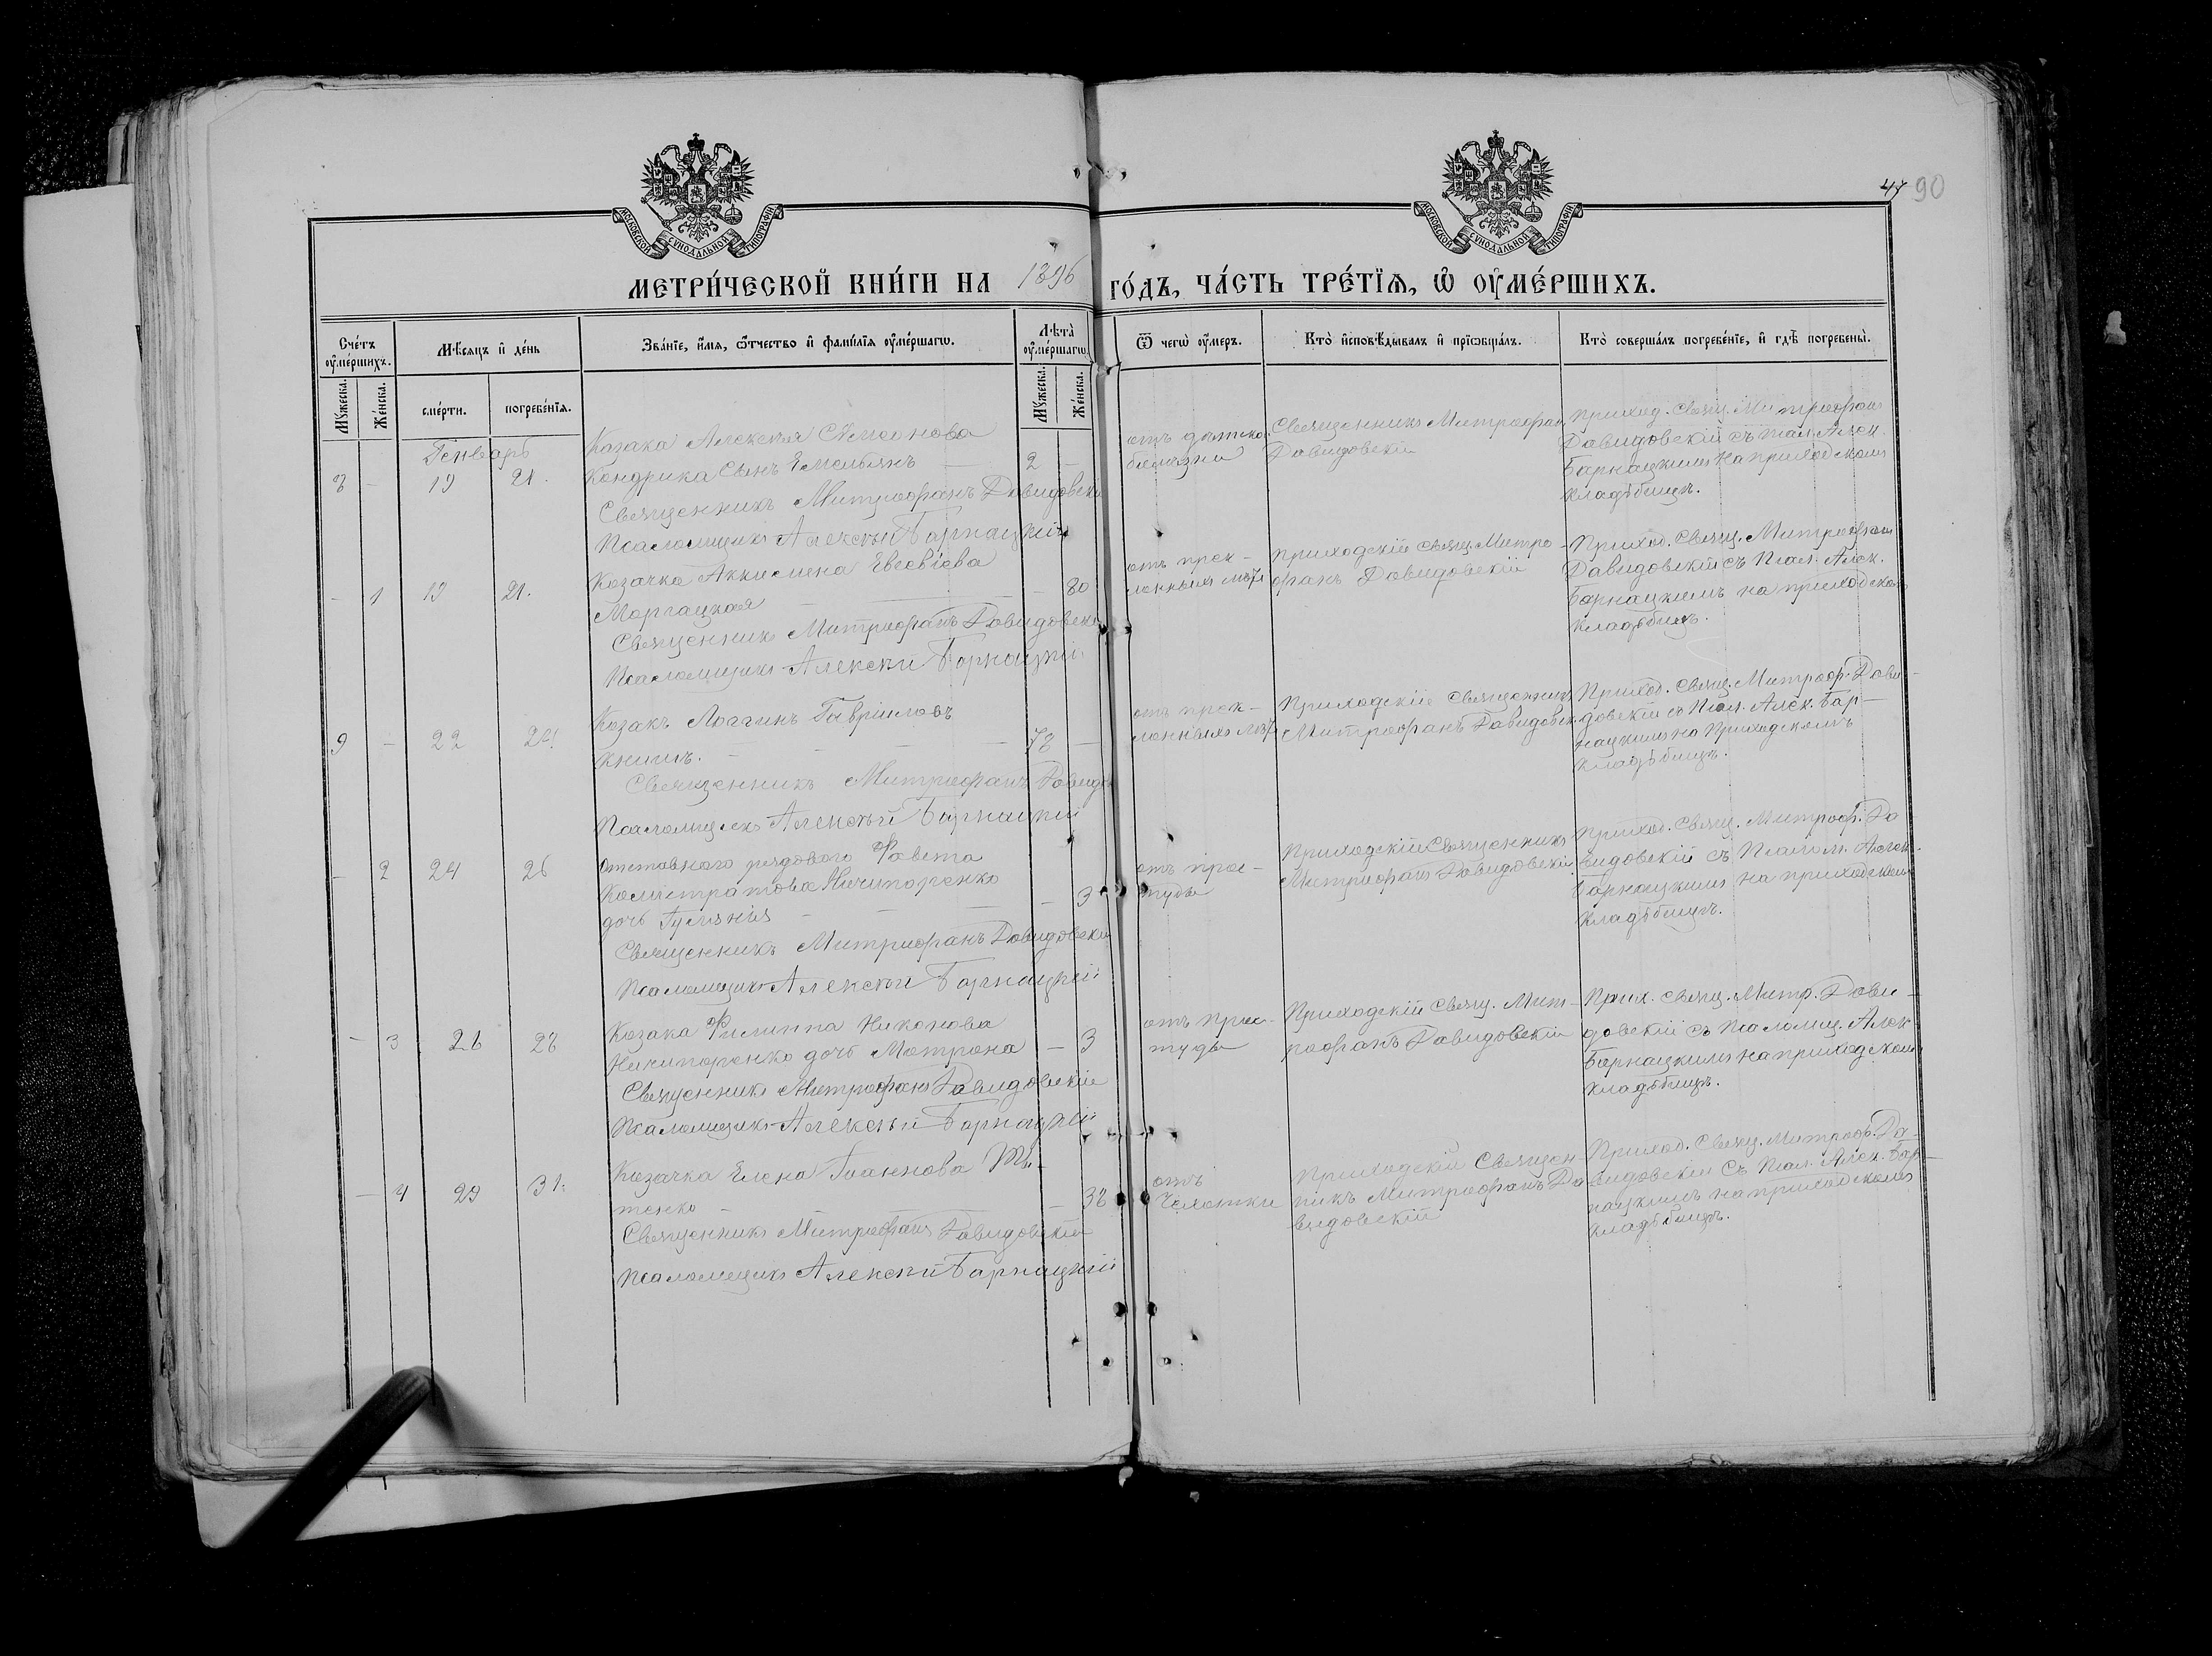 47 90
МОСКОВСКОЙ СУНОДАЛЬНОЙ ТИПОГРАФІИ
МОСКОВСКОЙ СУНОДАЛЬНОЙ ТИПОГРАФІИ
МЕТРИ́ЧЕСКОЙ КНИ́ГИ НА 1896 ГО́ДЪ, ЧА́СТЬ ТРЕ́ТЇѦ, Ѡ ОУМЕ́РШИХЪ.
Сче́тъ оуме́ршихъ.
Мѣ́сяцъ и де́нь
Зва́нїе, и́мѧ, ѻ́тчество и фами́лїѧ оуме́ршагѡ.
Лѣта̀ оуме́ршагѡ.
Ѿ чегѡ̀ оу́меръ.
Кто̀ и҆сповѣ́дывалъ и҆ прїѡбща́лъ.
Кто̀ соверша́лъ погребе́нїе, и҆ гдѣ̀ погребены̀.
Мꙋ́жеска.
Же́нска.
сме́рти.
погребе́нїѧ.
Мꙋ́жеска.
Же́нска.
Генварь
Козака Алексея Семеонова
Кондрика сынъ Емельянъ
8 - 19 21. 2 -
Священникъ Митрофанъ Давидовскій
Псаломщикъ Алексѣй Барнацкій
отъ дѣтско.
болѣзни
Священникъ Митрофанъ
Давидовскій
Приход. Свящ. Митрофанъ
Давидовскій съ Псал. Алек.
Барнацкимъ на приходскомъ
кладбищѣ.
Козачка Евсевіева
- 1 19 21. - 80
Моргацкая
Священникъ Митрофанъ Давидовскій
Псаломщикъ Алексѣй Барнацкій
отъ прек-
лонныхъ лѣтъ
Приходскій свящ. Митро-
фанъ Давидовскій
Приход. Свящ. Митрофанъ
Давидовскій съ Псал. Алек.
Барнацкимъ на приходском
кладбищѣ.
Козакъ Логгинъ Гавріиловъ
9 - 22 24 78 -
Книшъ.
Священникъ Митрофанъ Давидов
Псаломщикъ Алексѣй Барнацкій
отъ прек-
лонныхъ лѣтъ
Приходскій Священникъ
Митрофанъ Давидовск.
Приход. Свящ. Митроф. Дави-
довскій съ Псал. Алек. Бар-
нацкимъ на Приходскомъ
кладбищѣ.
Отставного рядового
- 2 24 26 - 3
Калистратова Ничипоренко
дочь
Священникъ Митрофанъ Давидовскій
Псаломщикъ Алексѣй Барнацкій
отъ прос-
туды
Приходскій Священникъ
Митрофанъ Давидовскій
Приход. Свящ. Митроф. Да
видовскій съ Псалом. Алек.
Барнацкимъ на приходскомъ
кладбищѣ.
Козака Филиппа Никонова
- 3 26 28 - 3
Ничипоренко дочь Мотрона
Священникъ Митрофанъ Давидовскій
Псаломщикъ Алексѣй Барнацкій
отъ прос-
туды
Приходскій Свящ. Мит-
рофанъ Давидовскій
Прих. свящ. Митр. Дави-
довскій съ Псаломщ. Алек
Барнацкимъ на приходском
кладбищѣ.
Козачка Елена Іоаннова Ти-
- 4 29 31. - 38
тенко
Священникъ Митрофанъ Давидовскій
Псаломщикъ Алексѣй Барнацкій
отъ
Чехотки
Приходскій Священ-
никъ Митрофанъ Да
видовскій
Приход. Свящ. Митроф. Да-
видовскій съ Псал. Алек. Бар-
нацкимъ на приходскомъ
кладбищѣ.